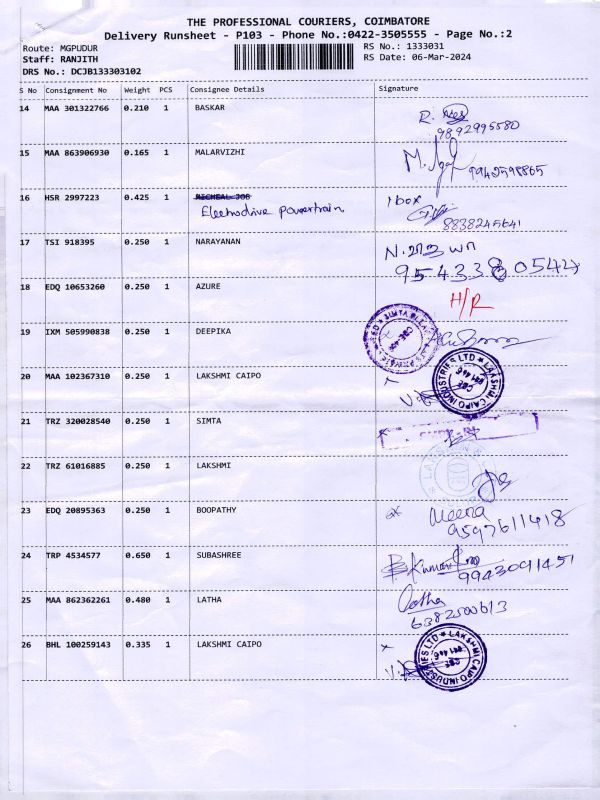 THE PROFESSIONAL COURIERS, COIMBATORE
Delivery Runsheet - P103 - Phone No.:0422-3505555 - Page No.:2
Route: MGPUDUR RS No.: 1333031
Staff: RANJITH RS Date: 06-Mar-2024
DRS No.: DCJB133303102
S No Consignment No Weight PCS Consignee Details Signature
14 MAA 301322766 0.210 1 BASKAR
9892995580
15 MAA 863906930 0.165 1 MALARVIZHI
9942598865
16 HSR 2997223 0.425 1 MICHEAL JOB 1 box
Electrodrive Powertrain
8838245641
17 TSI 918395 0.250 1 NARAYANAN
9543380544
18 EDQ 10653260 0.250 1 AZURE H/R
19 IXM 505990838 0.250 1 DEEPIKA
20 MAA 102367310 0.250 1 LAKSHMI CAIPO
LAKSHMI CAIPO INDUSTRIES LTD
CBE
641 446
21 TRZ 320028540 0.250 1 SIMTA
22 TRZ 61016885 0.250 1 LAKSHMI
23 EDQ 20895363 0.250 1 BOOPATHY Meena
9597611418
24 TRP 4534577 0.650 1 SUBASHREE
9943091451
25 MAA 862362261 0.480 1 LATHA Latha
6382500613
26 BHL 100259143 0.335 1 LAKSHMI CAIPO
LAKSHMI CAIPO INDUSTRIES LTD
CBE
641 446